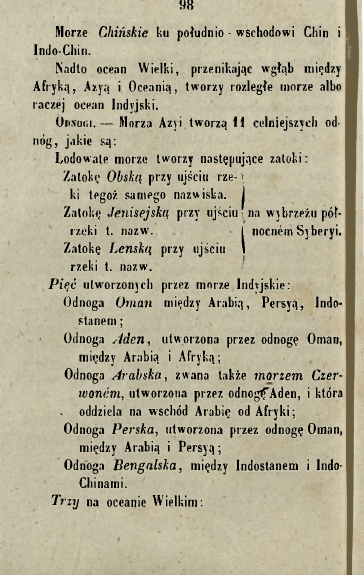 98
Morze Chińskie ku południo - wschodowi Chin i
Indo-Chin.
Nadto ocean Wielki, przenikając wgłąb między
Afryką, Azyą i Oceanią, tworzy rozległe morze albo
raczej ocean Indyjski.
ODNOGI. — Morza Azyi tworzą 11 celniejszych od-
nóg, jakie są:
Lodowate morze tworzy następujące zatoki:
Zatokę Obską przy ujściu rze-
ki tegoż samego nazwiska.
Zatokę Jenisejską przy ujściu na wybrzeżu pół-
rzeki t. nazw. nocném Syberyi.
Zatokę Lenską przy ujściu
rzeki t. nazw.
Pięć utworzonych przez morze Indyjskie:
Odnoga Oman między Arabią, Persyą, Indo-
stanem;
Odnoga Aden, utworzona przez odnogę Oman,
między Arabią i Afryką;
Odnoga Arabska, zwana także morzem Czer-
woném, utworzona przez odnogę Aden, i która
oddziela na wschód Arabię od Afryki;
Odnoga Perska, utworzona przez odnogę Oman,
między Arabią i Persyą;
Odnoga Bengalska, między Indostanem i Indo-
Chinami.
Trzy na oceanie Wielkim: